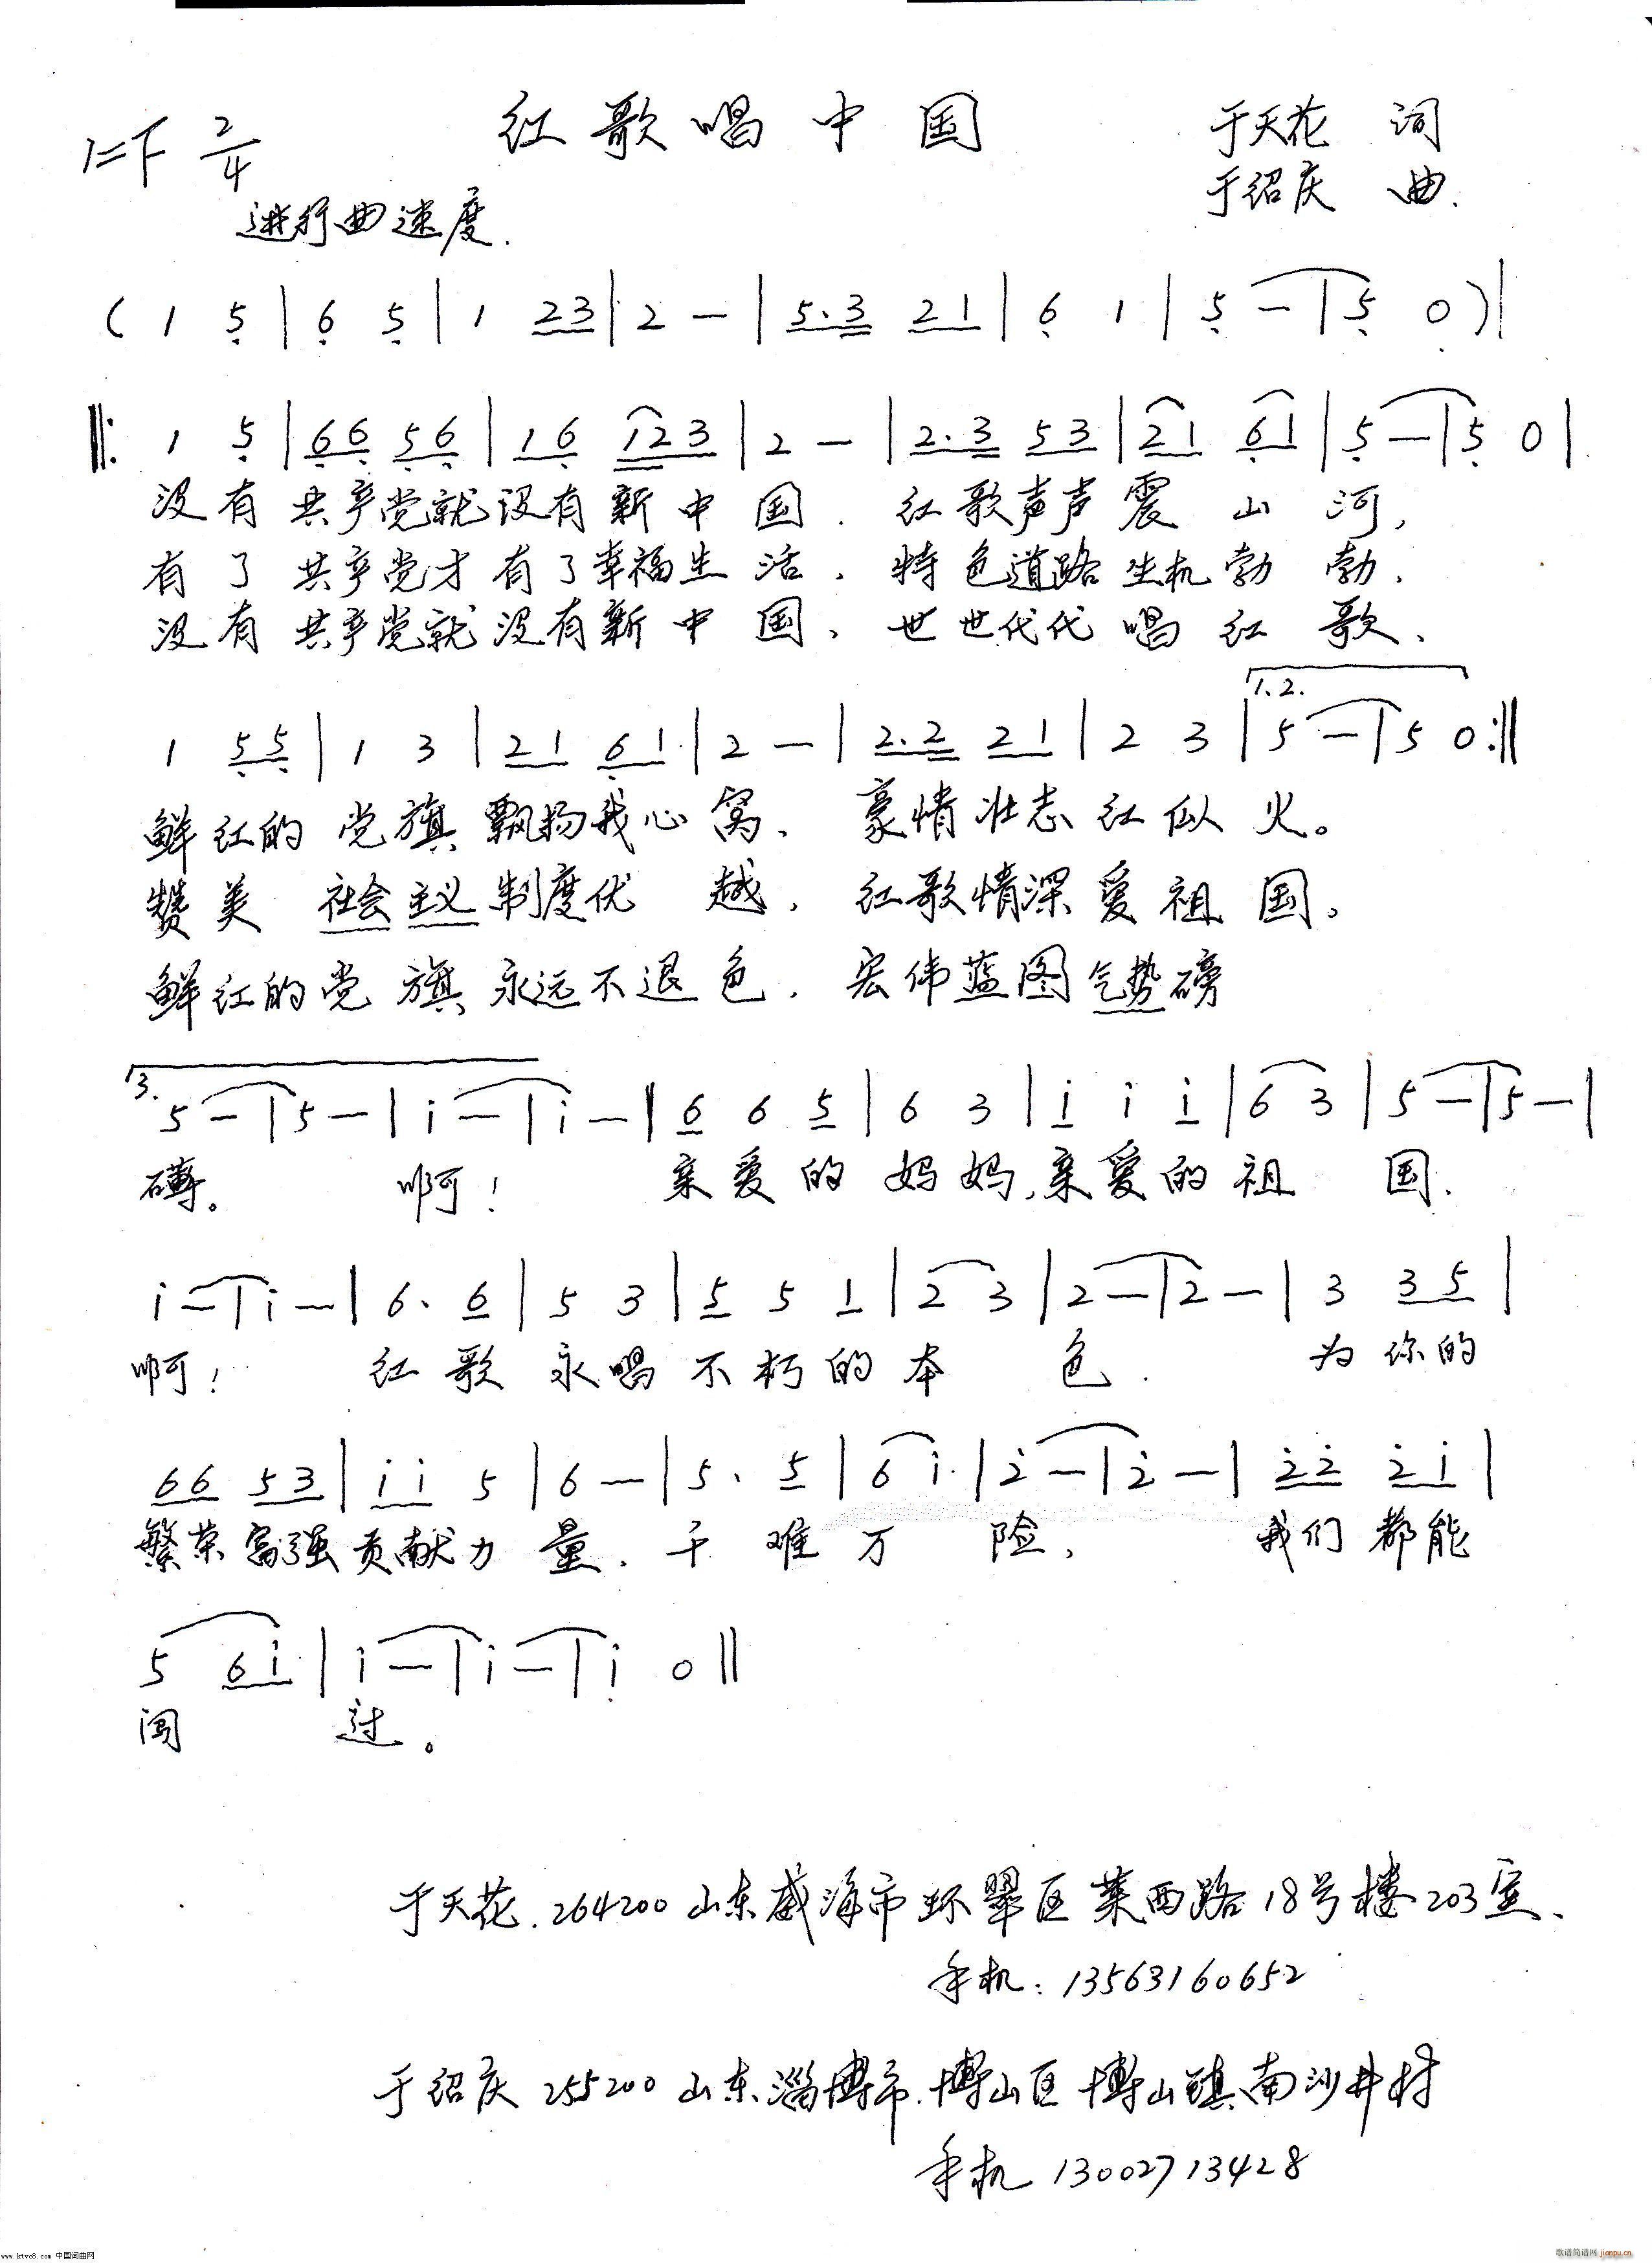 红歌唱中国
1=F 2/4
于天花 词
于绍庆 曲.
进行曲速度.
( 1 5 | 6 5 | 1 23 | 2 — | 5.3 21 | 6 1 | 5 — | 5 0 ) |
‖: 1 5 | 66 56 | 16 123 | 2 — | 2.3 53 | 21 61 | 5 — | 5 0 |
没有共产党就没有新中国. 红歌声声震山河,
有了共产党才有了幸福生活, 特色道路生机勃勃.
没有共产党就没有新中国、世世代代唱红歌、
1.2.
1 55 | 1 3 | 21 61 | 2 — | 2.2 21 | 2 3 | 5 — | 5 0 :‖
鲜红的党旗飘扬我心窝、豪情壮志红似火。
赞美社会主义制度优越, 红歌情深爱祖国。
鲜红的党旗永远不退色. 宏伟蓝图气势磅
3.
5 — | 5 — | i — | i — ‖ 6 6 5 | 6 3 | i i i | 6 3 | 5 — | 5 — |
礴。 啊! 亲爱的妈妈,亲爱的祖国.
i — | i — | 6. 6 | 5 3 | 5 5 1 | 2 3 | 2 — | 2 — | 3 35 |
啊! 红歌永唱不朽的本色. 为你的
66 53 | ii 5 | 6 — | 5. 5 | 6 i | 2 — | 2 — | 22 2i |
繁荣富强贡献力量. 千难万险, 我们都能
5 6i | i — | i — | i 0 ‖
闯过。
于天花.264200山东威海市环翠区莱西路18号楼203室、
手机:13563160652
于绍庆 255200 山东淄博市.博山区博山镇南沙井村
手机 13002713428
www.ktvc8.com 中国词曲网
歌谱简谱网 jianpu.cn